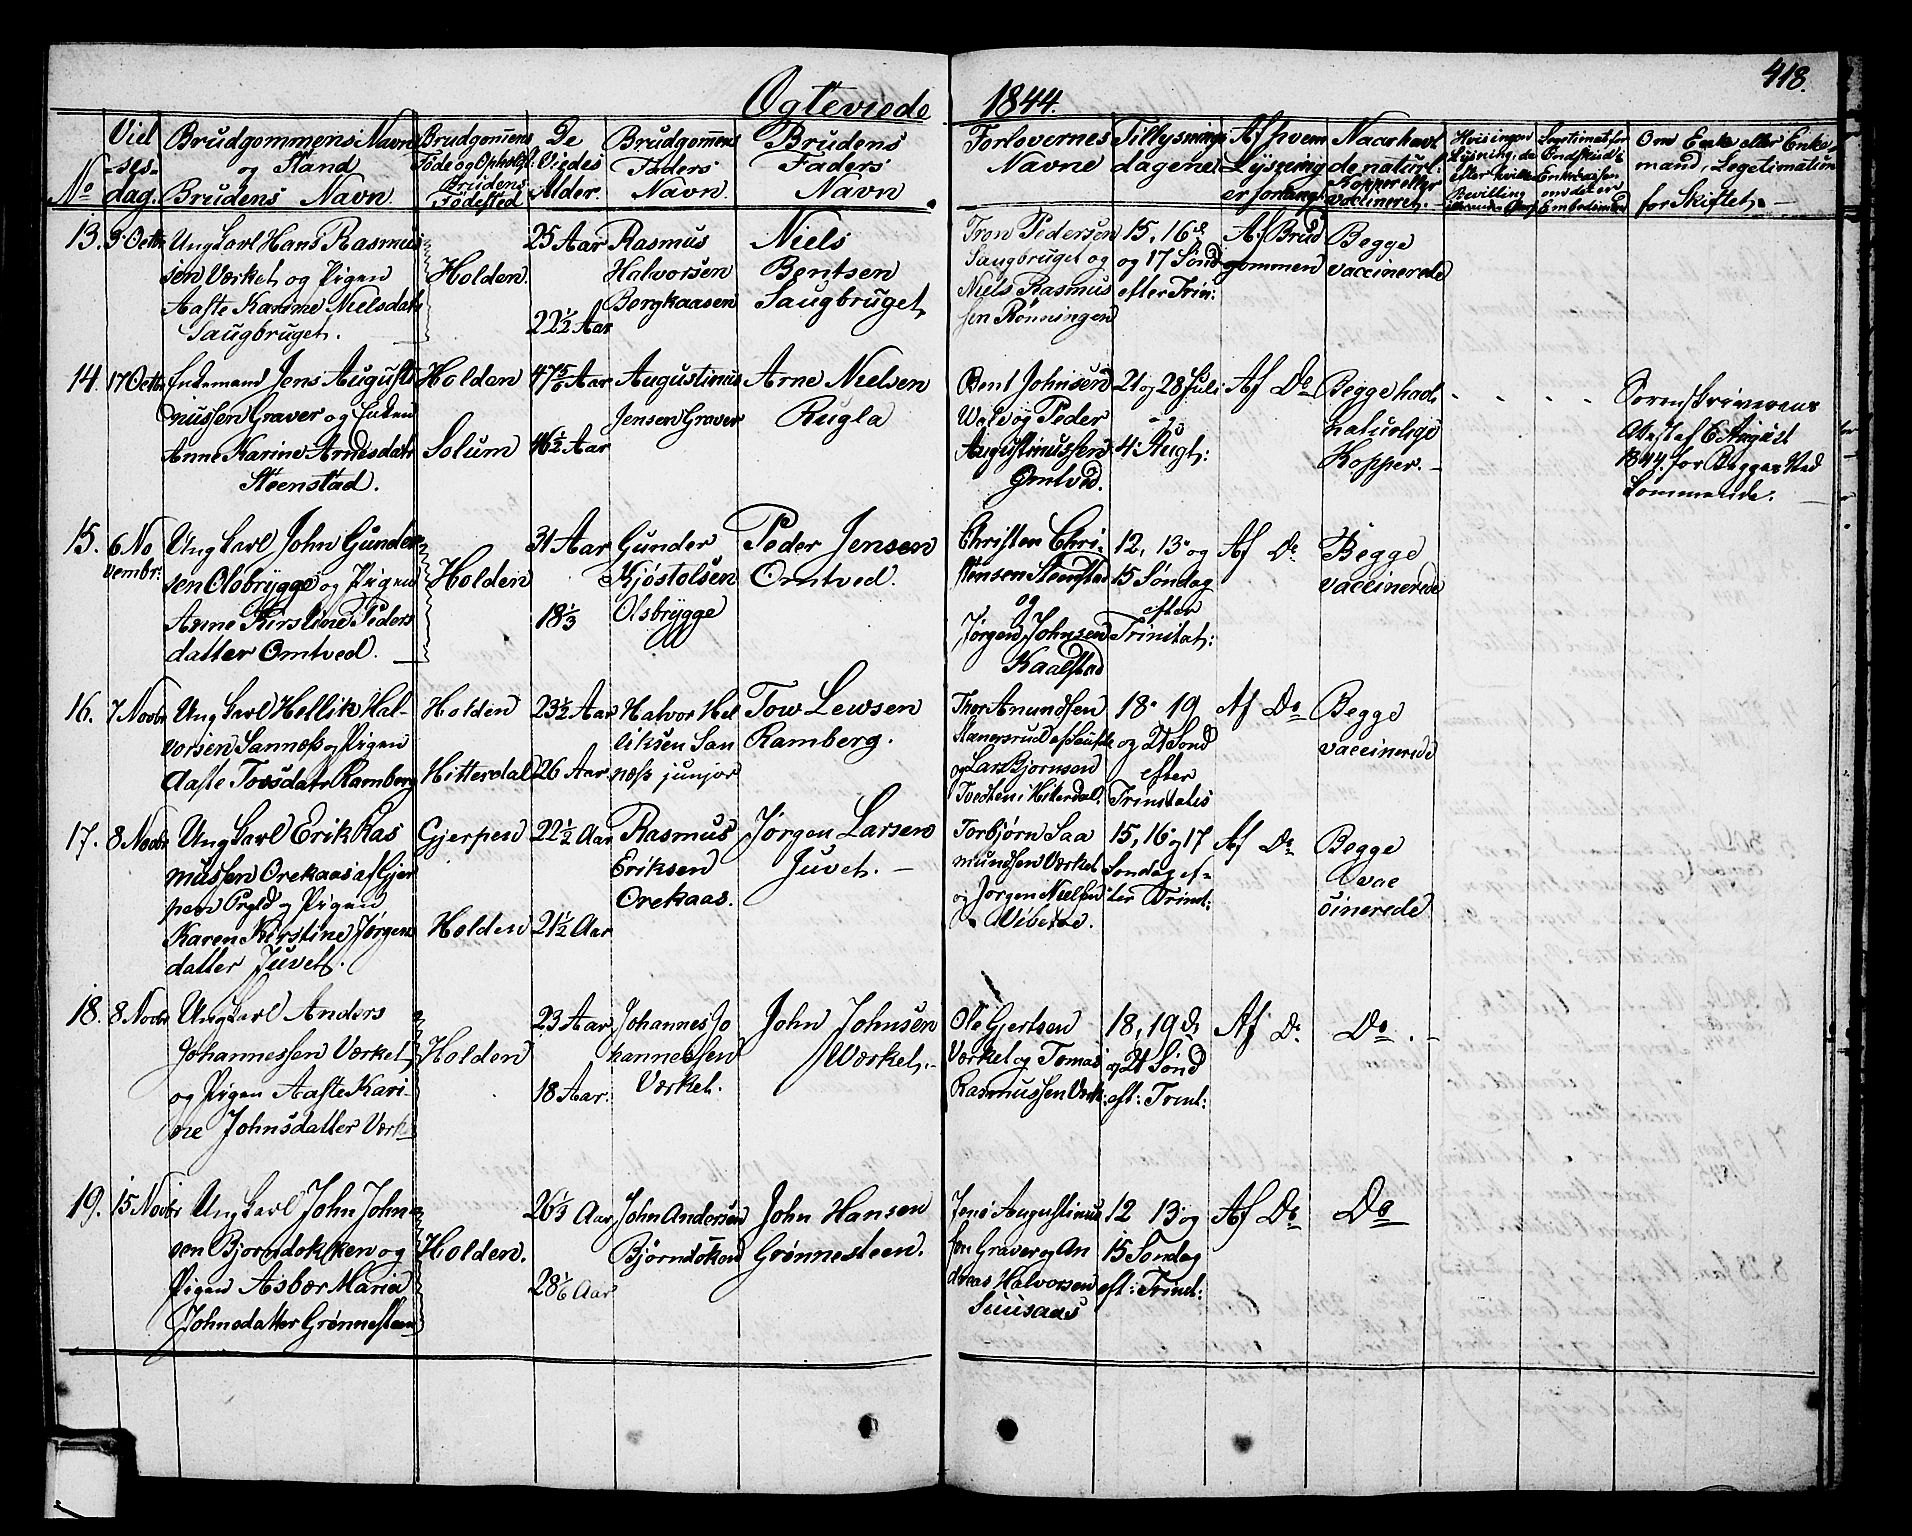 418.
Ogteviede 1844.
No
Viel
-ses-
dag.
Brudgommens Navn
og Stand
Brudens Navn.
Brudgommens
Føde og Opholds
Brudens
Fødested
De
Viedes
Alder.
Brudgommens
Faders
Navn.
Brudens
Faders
Navn
Forlovernes
Navne
Tillysnings
dagene
Af hvem
Lysning
er forlangt
Naar havt
de naturl:
Kopper eller
vaccineret.
Hvis ingen
Lysning, da
efter hvilken
Bevilling
Om Enke eller Enke-
mand, Legitimation
for Skiftet.
13. 3 Octb
Ungkarl Hans Rasmus
sen Værket og Pigen
Aaste Karine Nielsdatr
Saugbruget.
Holden.
25 Aar
22½ Aar
Rasmus
Halvorsen
Borgkaasen
Niels
Bentsen
Saugbruget,
Tron Pedersen
Saugbruget og
Niels Rasmus
sen Rønningen
15, 16d
og 17 Sønd
efter Trin:
Af Brud
gommen
Begge
vaccinerede
14. 17 Octb
Enkemand Jens Augusti
nussen Graver og Enken
Anne Karine Arnesdatr
Steenstad.
Holden
Solum
47 5/6 Aar
46½ Aar
Augustinus
Jensen Graver
Arne Nielsen
Rugla
Bent Johnsen
Wols og Peder
Augustinussen
Omtved.
21 og 28 Juli
og
4 Augt:
Af Do
Begge hade
naturlige
Kopper.
Sorenskriverens
Attest af 6 August
1844. for Begges Ved
kommende.
15. 6 No
vembr:
Ungkarl John Gunder
sen Olsbrygge og Pigen
Anne Kirstine Peders
datter Omtved.
Holden
31 Aar
18⅓
Gunder
Kjøstolsen
Olsbrygge
Peder Jensen
Omtved.
Christen Chri-
stensen Steenstad
og
Jørgen Johnsen
Kaalstad
12, 13 og
15 Søndag
efter
Trinitat:
Af Do
Begge
vaccinerede
16. 7 Novbr
Ungkarl Hellik Hal-
vorsen Sannæss og Pigen
Aaste Torsdatr Ramberg
Holden
Hitterdal
23½ Aar
26 Aar
Halvor Hel
liksen San
næss junjor
Tow Lewsen
Ramberg.
Thor Anundsen
og Lars Bjornsen
Tvedten i Hiterdal.
18. 19
og 21 Sond
efter
Trinitatis
Af Do
Begge
vaccinerede
17. 8 Novbr
Ungkarl Erik Ras
mussen Orekaas af Gjer
pen Prgld og Pigen
Karen Kirstine Jørgens
datter Juvet.
Gjerpen
Holden
22½ Aar
21½ Aar
Rasmus
Eriksen
Orekaas.
Jørgen Larsen
Juvet.
Torbjørn Saa
mundsen Værket
og Jørgen Nielsen
Vibetoe.
15, 16 og 17
Søndag ef-
ter Trinit:
Af Do
Begge
vac
cinerede
18. 8 Novbr
Ungkarl Anders
Johannessen Værket,
og Pigen Aaste Kari-
ne Johnsdatter Værket
Holden
23 Aar
18 Aar.
Johannes Jo
hannessen
Værket.
John Johnsen
Værket.
Ole Gjertsen
Værket og Tomas
Rasmussen Værk.
18, 19d
og 21 Sønd
eft: Trinit:
Af Do
Do
19. 15 Novbr
Ungkarl John John-
sen Bjorndokken og
Pigen Asbør Maria
Johnsdatter Grønnesteen
Holden.
26⅓ Aar
28 1/6 Aar
John Andersen
Bjørndoken
John Hansen
Grønnesteen.
Jens Augustinus
sen Graver og An
dreas Halvorsen
Suusaas
12 13 og
15 Søndag
eft: Trinit:
Af Do
Do